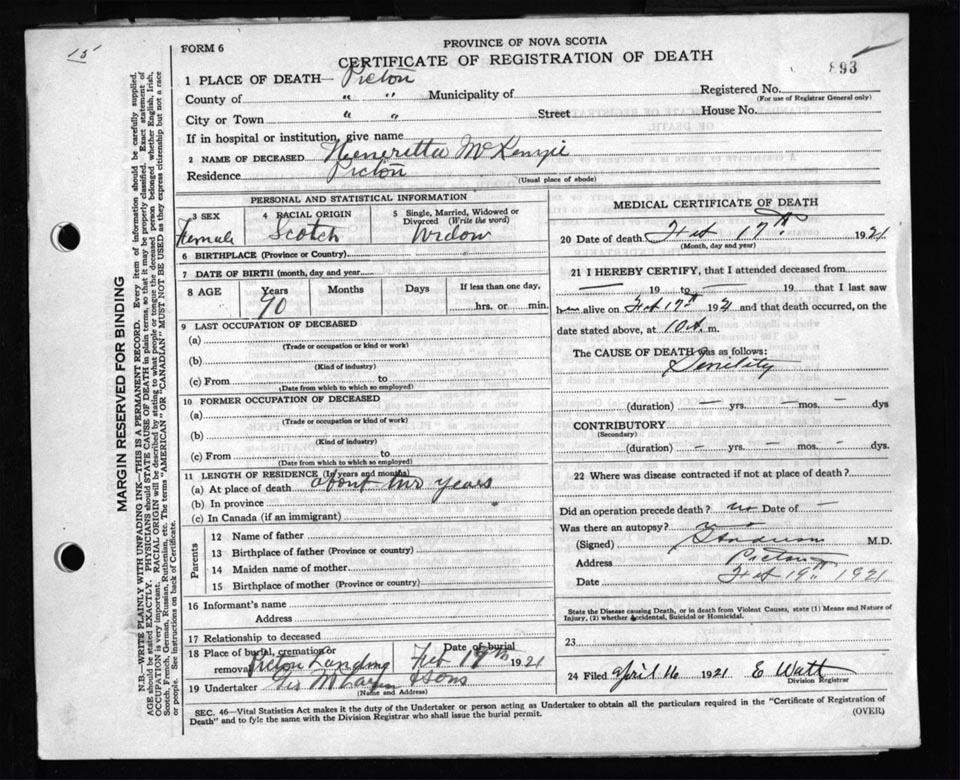 15
FORM 6
PROVINCE OF NOVA SCOTIA
CERTIFICATE OF REGISTRATION OF DEATH
893
1 PLACE OF DEATH— Pictou
County of " " Municipality of
Registered No.
(For use of Registrar General only)
City or Town " " Street House No.
If in hospital or institution, give name
2 NAME OF DECEASED Henrietta McKenzie
Residence Pictou
(Usual place of abode)
PERSONAL AND STATISTICAL INFORMATION
3 SEX
Female
4 RACIAL ORIGIN
Scotch
5 Single, Married, Widowed or Divorced (Write the word)
Widow
6 BIRTHPLACE (Province or Country)
7 DATE OF BIRTH (month, day and year
8 AGE Years Months Days If less than one day,
90 hrs. or min.
9 LAST OCCUPATION OF DECEASED
(a)
(Trade or occupation or kind or work)
(b)
(Kind of industry)
(c) From to
(Date from which to which so employed)
10 FORMER OCCUPATION OF DECEASED
(a)
(Trade or occupation or kind of work)
(b)
(Kind of industry)
(c) From to
(Date from which to which so employed)
11 LENGTH OF RESIDENCE (In years and months)
(a) At place of death about two years
(b) In province
(c) In Canada (if an immigrant)
Parents
12 Name of father
13 Birthplace of father (Province or country)
14 Maiden name of mother
15 Birthplace of mother (Province or country)
16 Informant's name
Address
17 Relationship to deceased
18 Place of burial, cremation or removal Pictou Landing
Date of burial
Feb 19th 1921
19 Undertaker & Sons
(Name and Address)
MEDICAL CERTIFICATE OF DEATH
20 Date of death Feb 17th 1921
(Month, day and year)
21 I HEREBY CERTIFY, that I attended deceased from
— 19 to — 19 that I last saw
h alive on Feb 17th 1921 and that death occurred, on the
date stated above, at 10 a. m.
The CAUSE OF DEATH was as follows:
Senility
(duration) — yrs. — mos. — dys
CONTRIBUTORY
(Secondary)
(duration) — yrs. — mos. — dys.
22 Where was disease contracted if not at place of death?
Did an operation precede death? no Date of —
Was there an autopsy? no
(Signed) M.D.
Address Pictou
Date Feb 19th 1921
State the Disease causing Death, or in death from Violent Causes, state (1) Means and Nature of
Injury, (2) whether Accidental, Suicidal or Homicidal.
23
24 Filed April 16 1921 E Watt
Division Registrar
SEC. 46—Vital Statistics Act makes it the duty of the Undertaker or person acting as Undertaker to obtain all the particulars required in the "Certificate of Registration of
Death" and to fyle the same with the Division Registrar who shall issue the burial permit.
(OVER)
MARGIN RESERVED FOR BINDING
N.B.—WRITE PLAINLY WITH UNFADING INK—THIS IS A PERMANENT RECORD. Every item of information should be carefully supplied.
AGE should be stated EXACTLY. PHYSICIANS should STATE CAUSE OF DEATH in plain terms, so that it may be properly classified. Exact statement of
OCCUPATION is very important. RACIAL ORIGIN will be described by stating to what people or tongue the deceased person belonged whether English, Irish,
Scotch, French, German, Russian, Ruthenian, etc. The terms "AMERICAN" OR "CANADIAN" MUST NOT BE USED as they express citizenship but not a race
or people. See instructions on back of Certificate.